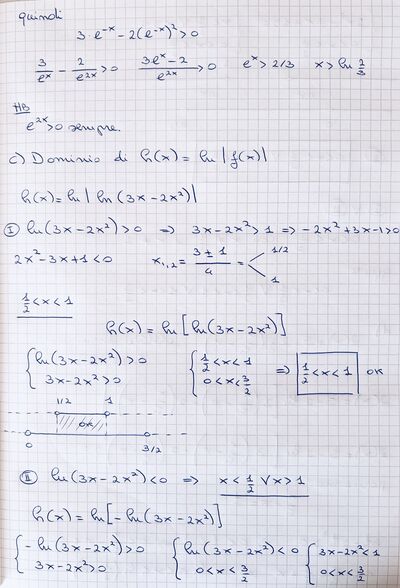 quindi
3 e⁻ˣ - 2(e⁻ˣ)² > 0
3/eˣ - 2/e²ˣ > 0   (3eˣ - 2)/e²ˣ > 0   eˣ > 2/3   x > ln 2/3
NB
e²ˣ > 0 sempre.
c) Dominio di h(x) = ln |f(x)|
h(x) = ln | ln (3x - 2x²) |
I ln(3x - 2x²) > 0 => 3x - 2x² > 1 => -2x² + 3x - 1 > 0
2x² - 3x + 1 < 0   x₁,₂ = (3 ± 1)/4 = 1/2 1
1/2 < x < 1
h(x) = ln [ ln (3x - 2x²) ]
{ ln(3x - 2x²) > 0   { 1/2 < x < 1 => 1/2 < x < 1 OK
3x - 2x² > 0   0 < x < 3/2
1/2 1
OK
0 3/2
II ln(3x - 2x²) < 0 => x < 1/2 ∨ x > 1
h(x) = ln [ - ln (3x - 2x²) ]
{ - ln(3x - 2x²) > 0   { ln(3x - 2x²) < 0   { 3x - 2x² < 1
3x - 2x² > 0   0 < x < 3/2   0 < x < 3/2